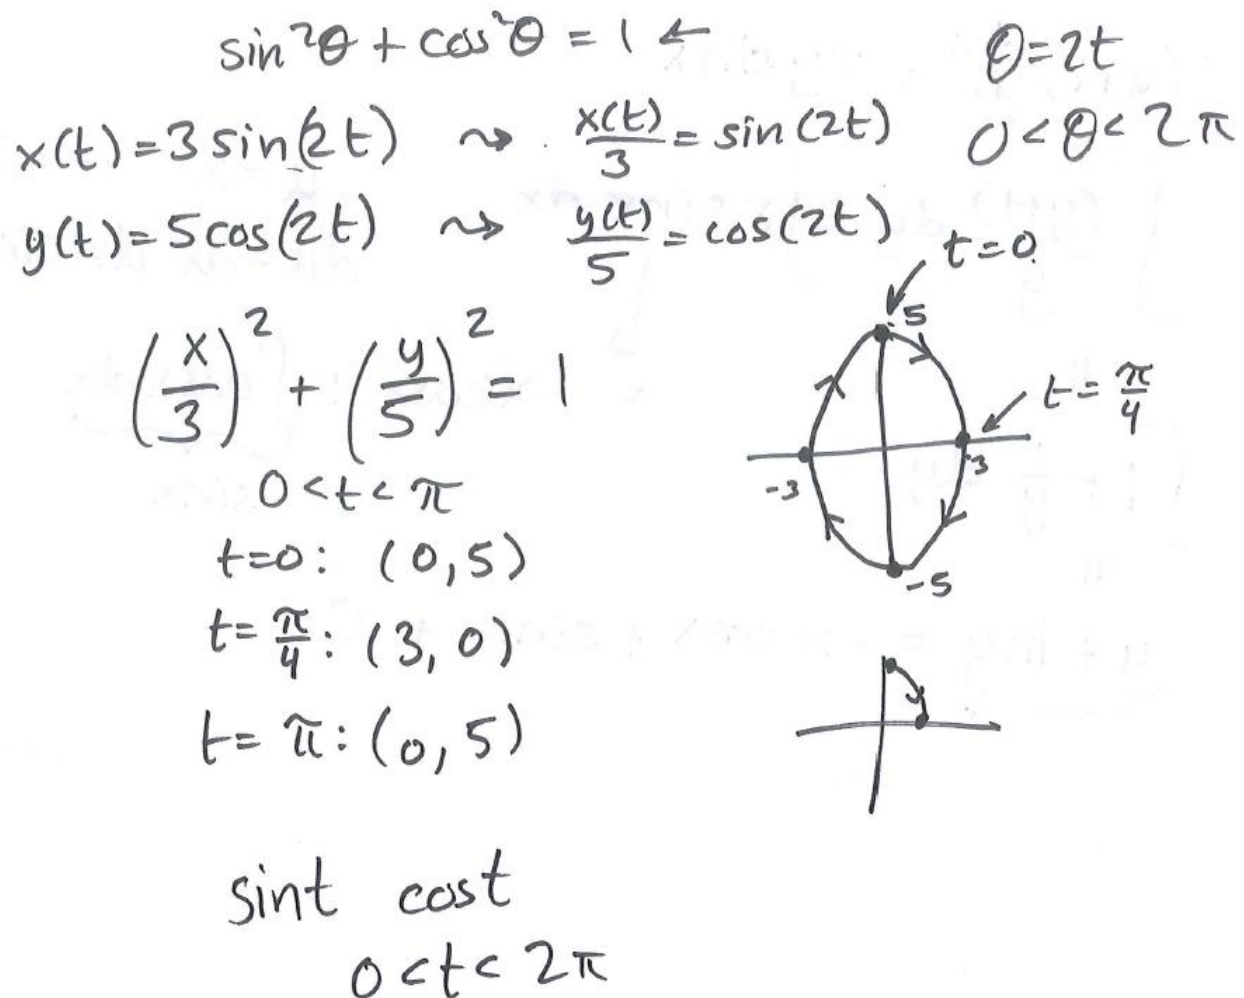 sin²θ + cos²θ = 1 ←
θ=2t
x(t)=3sin(2t) ⇝ x(t)/3 = sin(2t)
0<θ<2π
y(t)=5cos(2t) ⇝ y(t)/5 = cos(2t)
t=0
(x/3)² + (y/5)² = 1
5
t=π/4
-3
3
0<t<π
t=0: (0,5)
-5
t=π/4: (3,0)
t=π: (0,5)
sint cost
0<t<2π